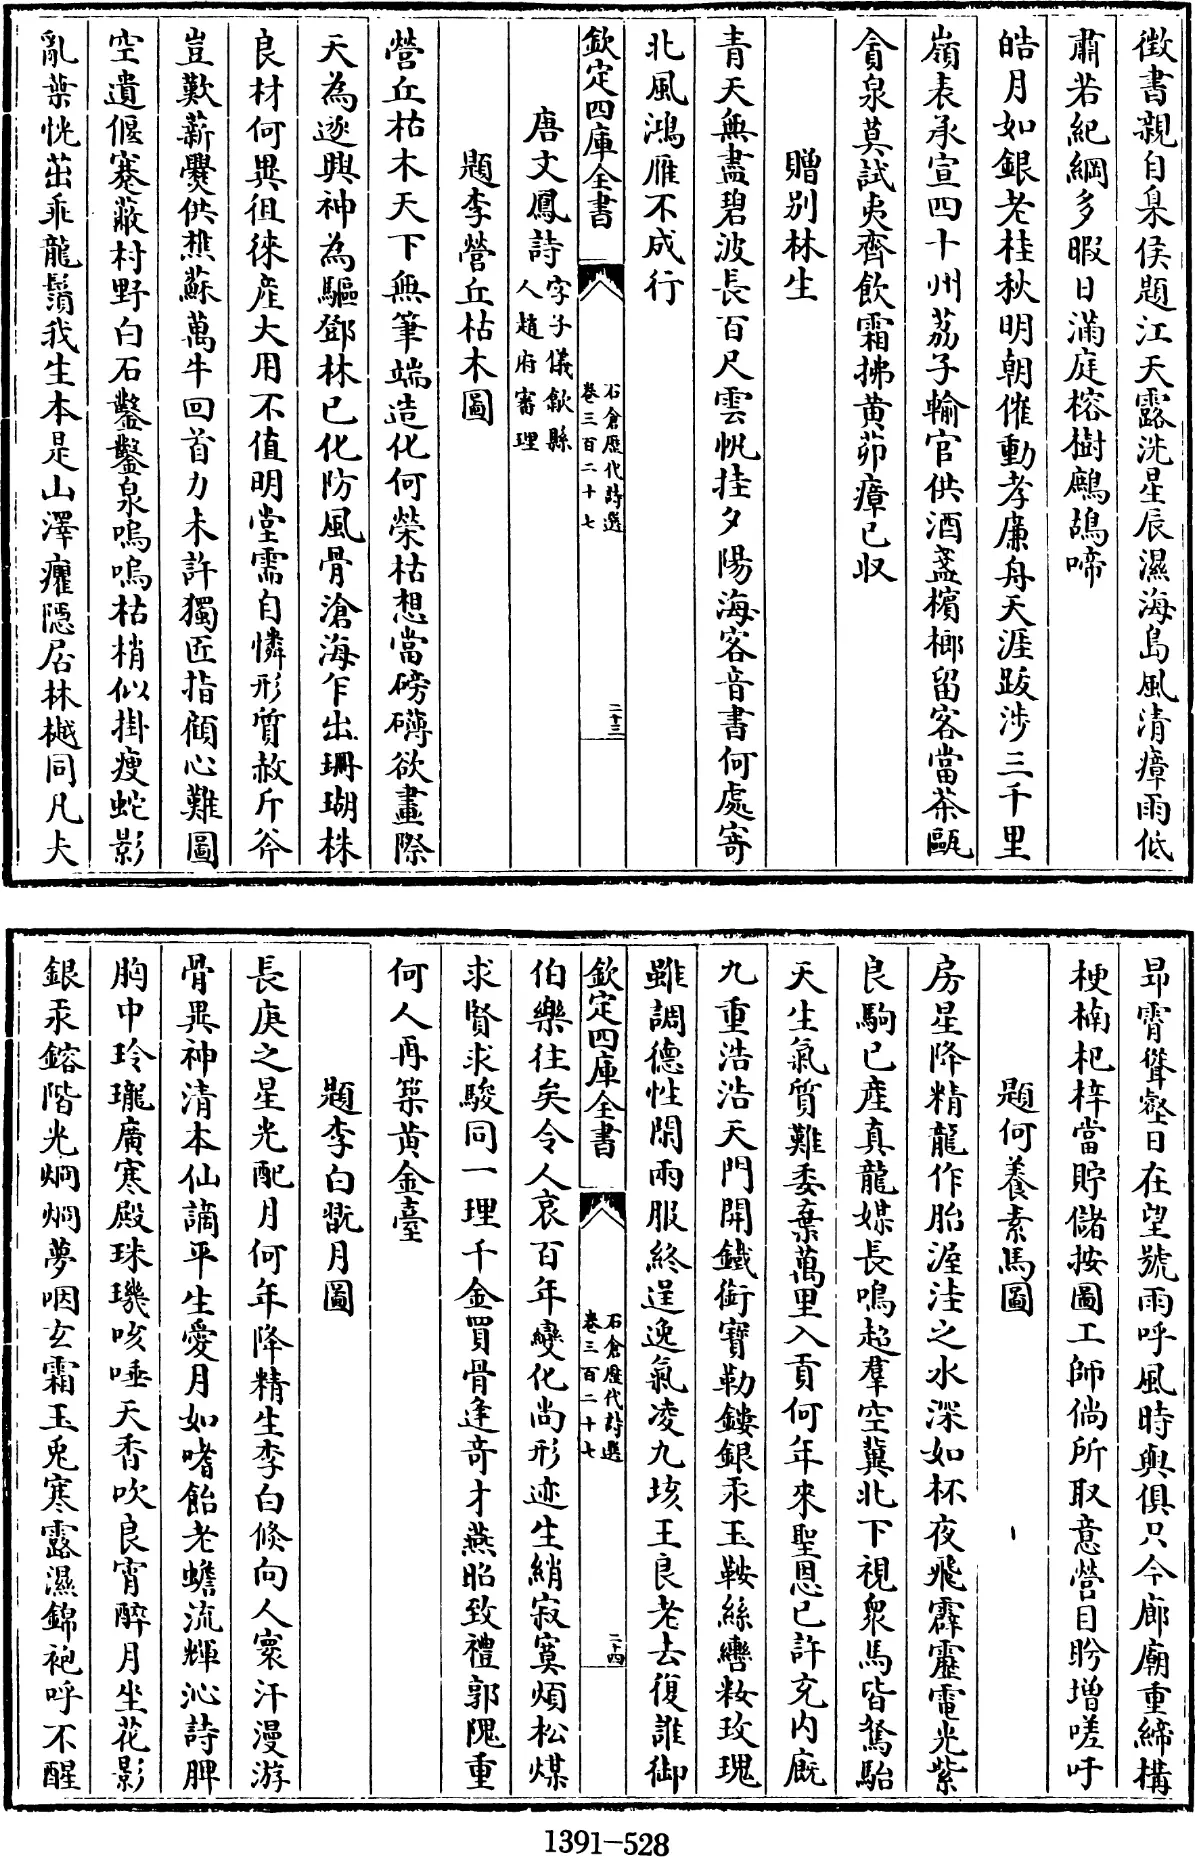 徴書親自臬侯題江天露洗星辰濕海島風清瘴雨低
肅若紀綱多暇日滿庭榕樹鷓鴣啼
皓月如銀老桂秋明朝催動孝廉舟天涯跋涉三千里
嶺表承宣四十州荔子輸官供酒盞檳榔留客當茶甌
貪泉莫試夷齊飲霜拂黄茆瘴已収
贈别林生
青天無盡碧波長百尺雲帆挂夕陽海客音書何處寄
北風鴻雁不成行
欽定四庫全書
石倉歴代詩選
卷三百二十七
二十三
唐文鳳詩字子儀歙縣
人趙府審理
題李營丘枯木圖
營丘枯木天下無筆端造化何榮枯想當磅礴欲畫際
天為遂興神為驅鄧林已化防風骨滄海乍出珊瑚株
良材何異徂徠産大用不值明堂需自憐形質赦斤斧
豈歎薪爨供樵蘇萬牛回首力未許獨匠指顧心難圖
空遺偃蹇蔽村野白石鑿鑿泉嗚嗚枯梢似掛瘦蛇影
亂葉恍茁乖龍鬚我生本是山澤癯隠居林樾同凡夫
昻霄聳壑日在望號雨呼風時與俱只今廊廟重締構
梗楠杞梓當貯儲按圖工師倘所取意營目盻增嗟吁
題何養素馬圖
房星降精龍作胎渥洼之水深如杯夜飛霹靂電光紫
良駒已産真龍媒長鳴超羣空冀北下視衆馬皆駑駘
天生氣質難委棄萬里入貢何年來聖恩已許充内廐
九重浩浩天門開鐵銜寶勒鏤銀汞玉鞍絲轡粧玫瑰
雖調德性閑兩服終逞逸氣凌九垓王良老去復誰御
欽定四庫全書
石倉歴代詩選
卷三百二十七
二十四
伯樂往矣令人哀百年變化尚形迹生綃寂寞煩松煤
求賢求駿同一理千金買骨逢奇才燕昭致禮郭隗重
何人再築黄金臺
題李白翫月圖
長庚之星光配月何年降精生李白倏向人寰汗漫游
骨異神清本仙謫平生愛月如嗜飴老蟾流輝沁詩脾
胸中玲瓏廣寒殿珠璣咳唾天香吹良宵醉月坐花影
銀汞鎔階光烱烱夢咽玄霜玉兎寒露濕錦袍呼不醒
1391-528